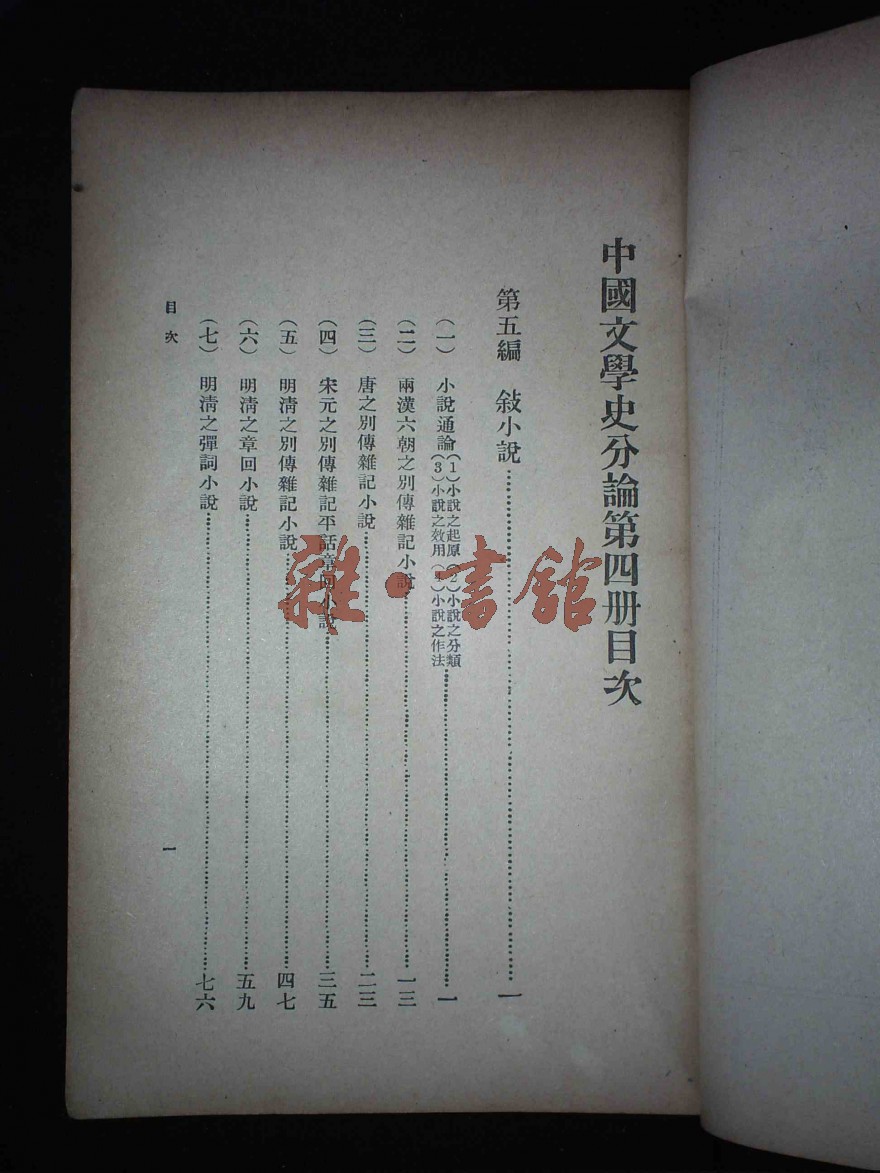 中國文學史分論第四册目次
第五編　敍小說……一
(一)　小說通論(1)小說之起原(2)小說之分類
(3)小說之效用(4)小說之作法……一
(二)　兩漢六朝之別傳雜記小說……一三
(三)　唐之別傳雜記小說……二三
(四)　宋元之別傳雜記平話章回小說……三五
(五)　明清之別傳雜記小說……四七
(六)　明清之章回小說……五九
(七)　明清之彈詞小說……七六
目次　一
雜·書館